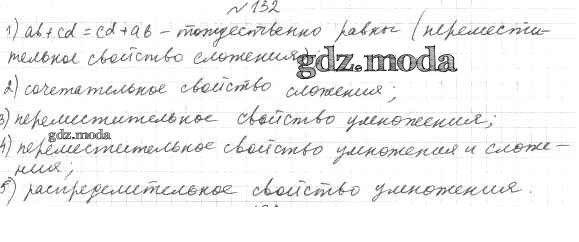 № 132
1) ab+cd = cd+ab – тождественно равны (перемести-
тельное свойство сложения);
gdz.moda
2) сочетательное свойство сложения;
3) переместительное свойство умножения;
gdz.moda
4) переместительное свойство умножения и сложе-
ния;
5) распределительное свойство умножения.